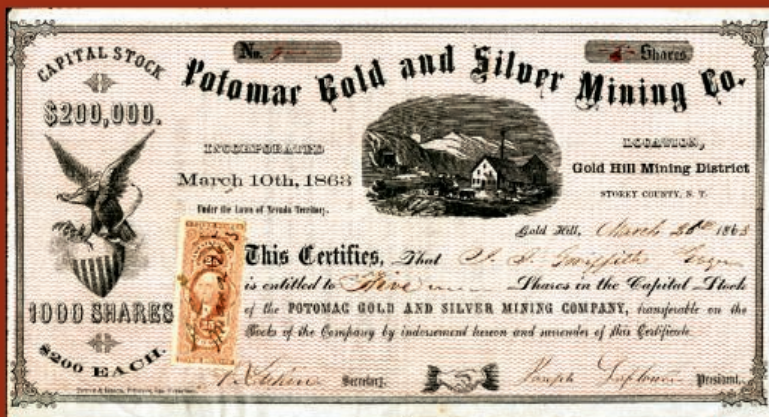 CAPITAL STOCK
$200,000.
1000 SHARES
$200 EACH.
No. 9
5 Shares
Potomac Gold and Silver Mining Co.
INCORPORATED
March 10th, 1863
Under the Laws of Nevada Territory.
LOCATION,
Gold Hill Mining District
STOREY COUNTY, N. T.
Gold Hill, March 26th 1863
This Certifies, That Griffith Esqr
is entitled to Five Shares in the Capital Stock
of the POTOMAC GOLD AND SILVER MINING COMPANY, transferable on the
Books of the Company by indorsement hereon and surrender of this Certificate.
Secretary.
Joseph President.